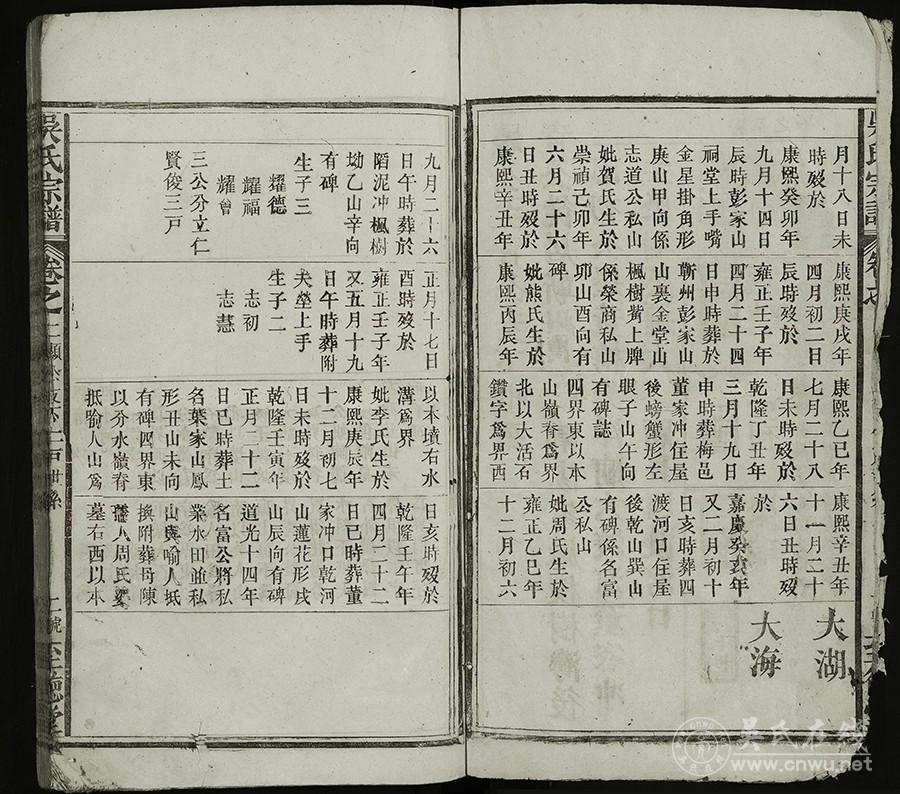 月十八日未
時歿於
康熙癸卯年
九月十四日
辰時彭家山
祠堂上手嘴
金星掛角形
庚山甲向係
志道公私山
妣賀氏生於
崇禎己卯年
六月二十六
日丑時歿於
康熙辛丑年
康熙庚戌年
四月初二日
辰時歿於
雍正壬子年
四月二十四
日申時葬於
蘄州彭家山
山裏金堂山
楓樹嘴上牌
係榮商私山
卯山酉向有
碑
妣熊氏生於
康熙丙辰年
康熙乙巳年
七月二十八
日未時歿於
乾隆丁丑年
三月十九日
申時葬梅邑
董家冲住屋
後螃蟹形左
眼子山午向
有碑誌
四界東以本
山嶺脊爲界
北以大活石
鑽字爲界西
康熙辛丑年
十一月二十
六日丑時歿
於
嘉慶癸亥年
又二月初十
日亥時葬四
渡河口住屋
後乾山巽山
有碑係名富
公私山
妣周氏生於
雍正乙巳年
十二月初六
大湖
大海
九月二十六
日午時葬於
陷泥冲楓樹
坳乙山辛向
有碑
生子三
耀德
耀福
耀曾
三公分立仁
賢俊三戸
正月十七日
酉時歿於
雍正壬子年
又五月十九
日午時葬附
夫塋上手
生子二
志初
志慧
以本墳石水
溝爲界
妣李氏生於
康熙庚辰年
十二月初七
日未時歿於
乾隆壬寅年
正月二十二
日巳時葬土
名葉家山鳳
形丑山未向
有碑四界東
以分水嶺脊
抵喻人山爲
日亥時歿於
乾隆壬午年
四月二十二
日巳時葬董
家冲口乾河
山蓮花形戌
山辰向有碑
道光十四年
名富公將私
業水田並私
山與喻人坻
換附葬母陳
人周氏
墓右西以本
吳氏宗譜
卷之
吳氏在线
www.cnwu.net